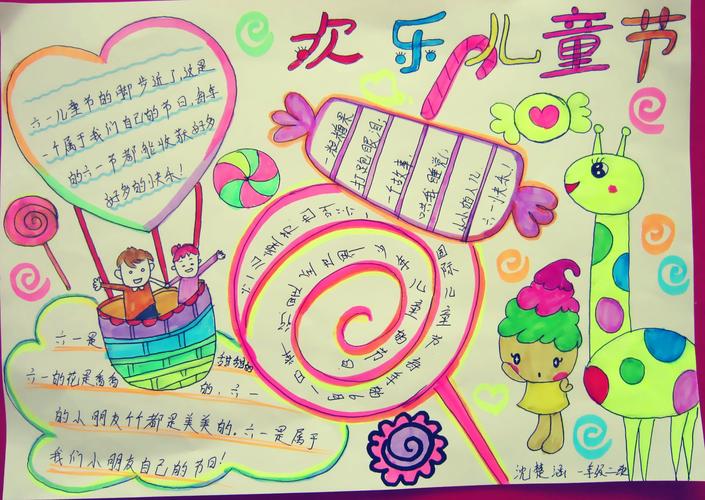 欢乐儿童节
六一儿童节的脚步近了,这是
一个属于我们自己的节日,每年
的六一节都能收获好多
好多的快乐!
一粒糖果
打跑眼泪;
一个故事,
哄我睡觉,
小小的人儿
六一快乐!
国际儿童节
每年的6月1日
儿童的节日
六一是
甜甜的
六一的花是香香的,六一
的小朋友个个都是美美的。六一是属于
我们小朋友自己的节日!
沈楚涵 一年级二班